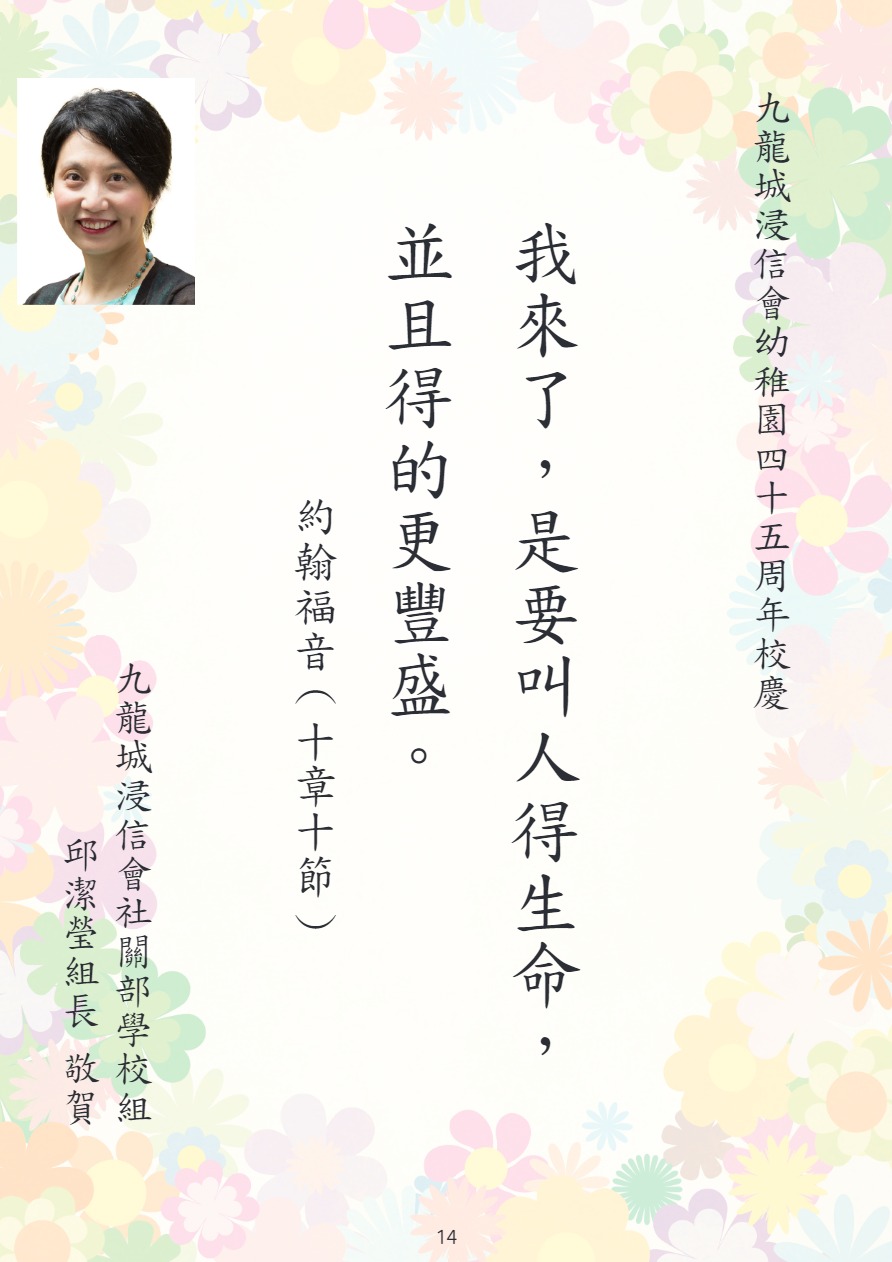 九龍城浸信會幼稚園四十五周年校慶
我來了，是要叫人得生命，
並且得的更豐盛。
約翰福音（十章十節）
九龍城浸信會社關部學校組
邱潔瑩組長 敬賀
14